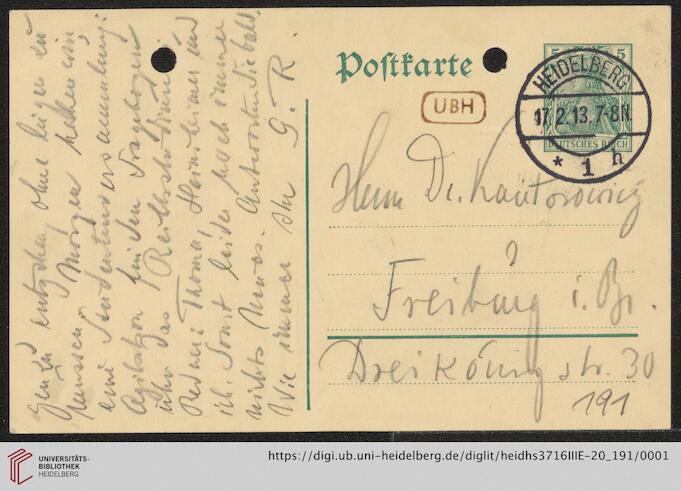 Postkarte
UBH
5 5
HEIDELBERG
17.2.13.7-8N.
* 1 h
DEUTSCHES REICH
Herrn Dr. Kantorowicz
Freiburg i. Br.
Dreikönigstr. 30
191
zu entgehen ohne lügen zu
müssen. Morgen haben wir
eine Studentenversammlung:
Agitation für den Fragebogen
über das
Redner: Thoma, Heinsheimer und
ich. Sonst leider noch immer
nichts Neues. Antworten Sie bald.
Wie immer Ihr G. R.
UNIVERSITÄTS-
BIBLIOTHEK
HEIDELBERG
https://digi.ub.uni-heidelberg.de/diglit/heidhs3716IIIE-20_191/0001